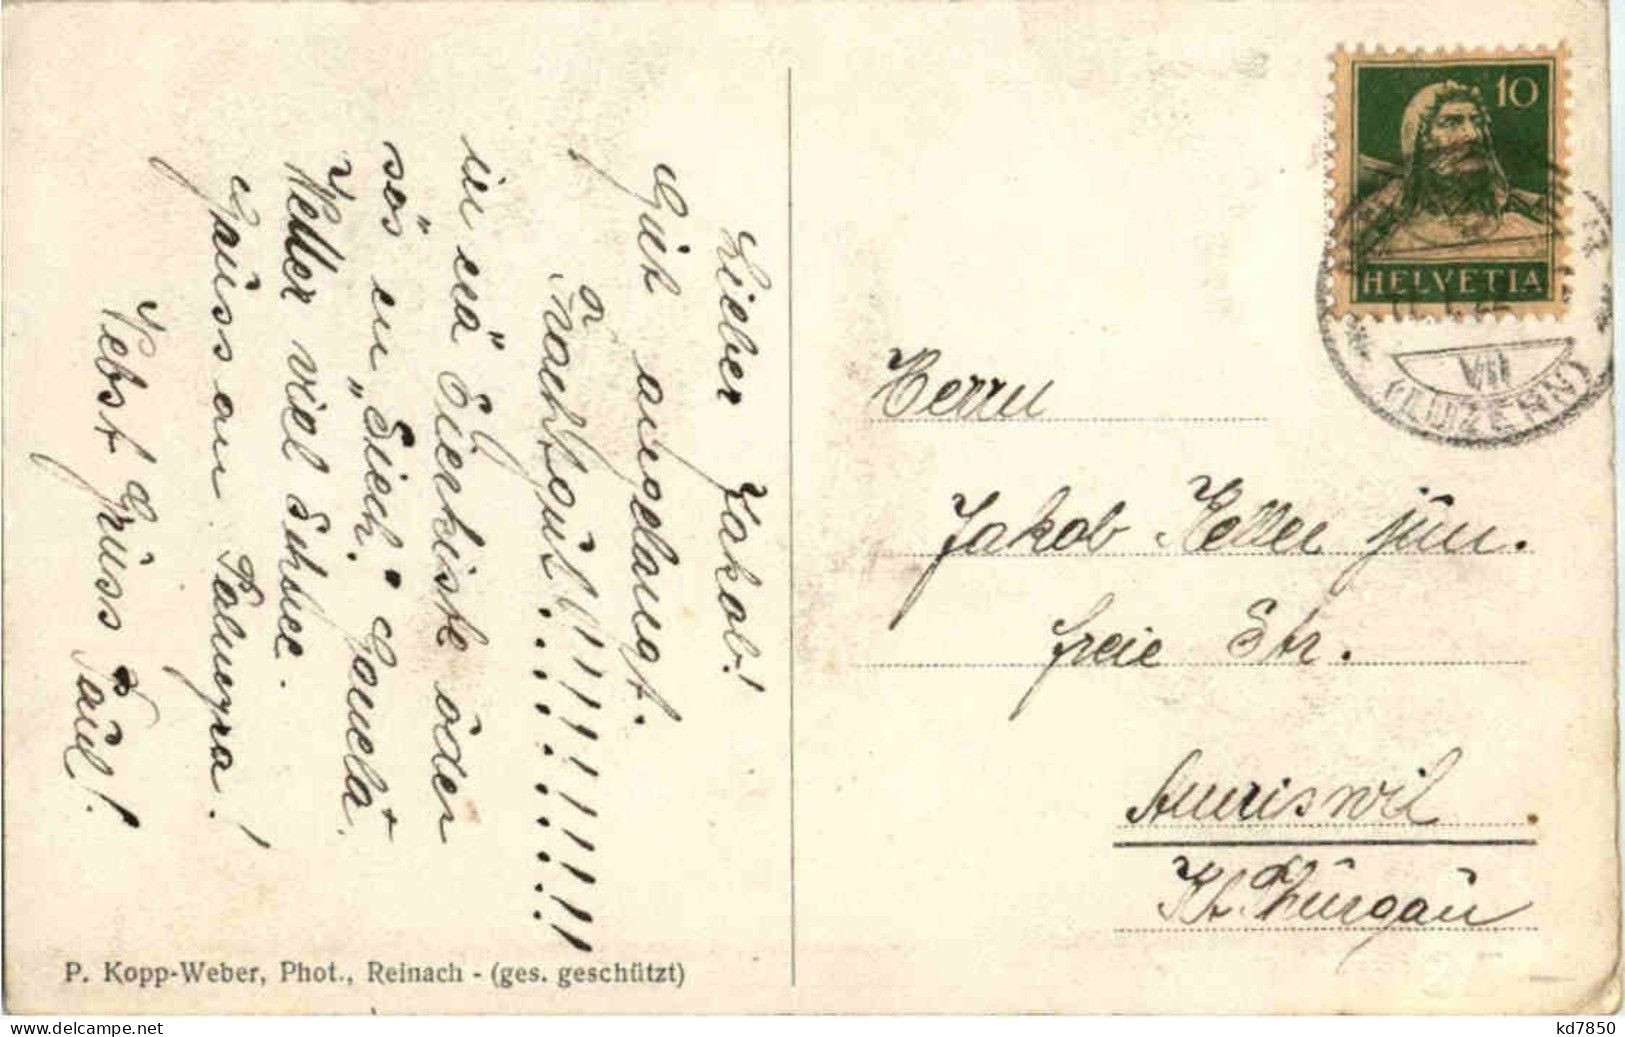 Lieber Jakob!
Gut angelangt.
a
in eiä Eierkiste oder
sös en „Siech."
Keller viel Schnee.
Gruss an Palmyra!
Nebst Gruss Paul!
P. Kopp-Weber, Phot., Reinach - (ges. geschützt)
10
HELVETIA
VII
(LUZERN)
Herrn
Jakob Keller jun.
freie Str.
Amriswil
Kt. Thurgau
kd7850